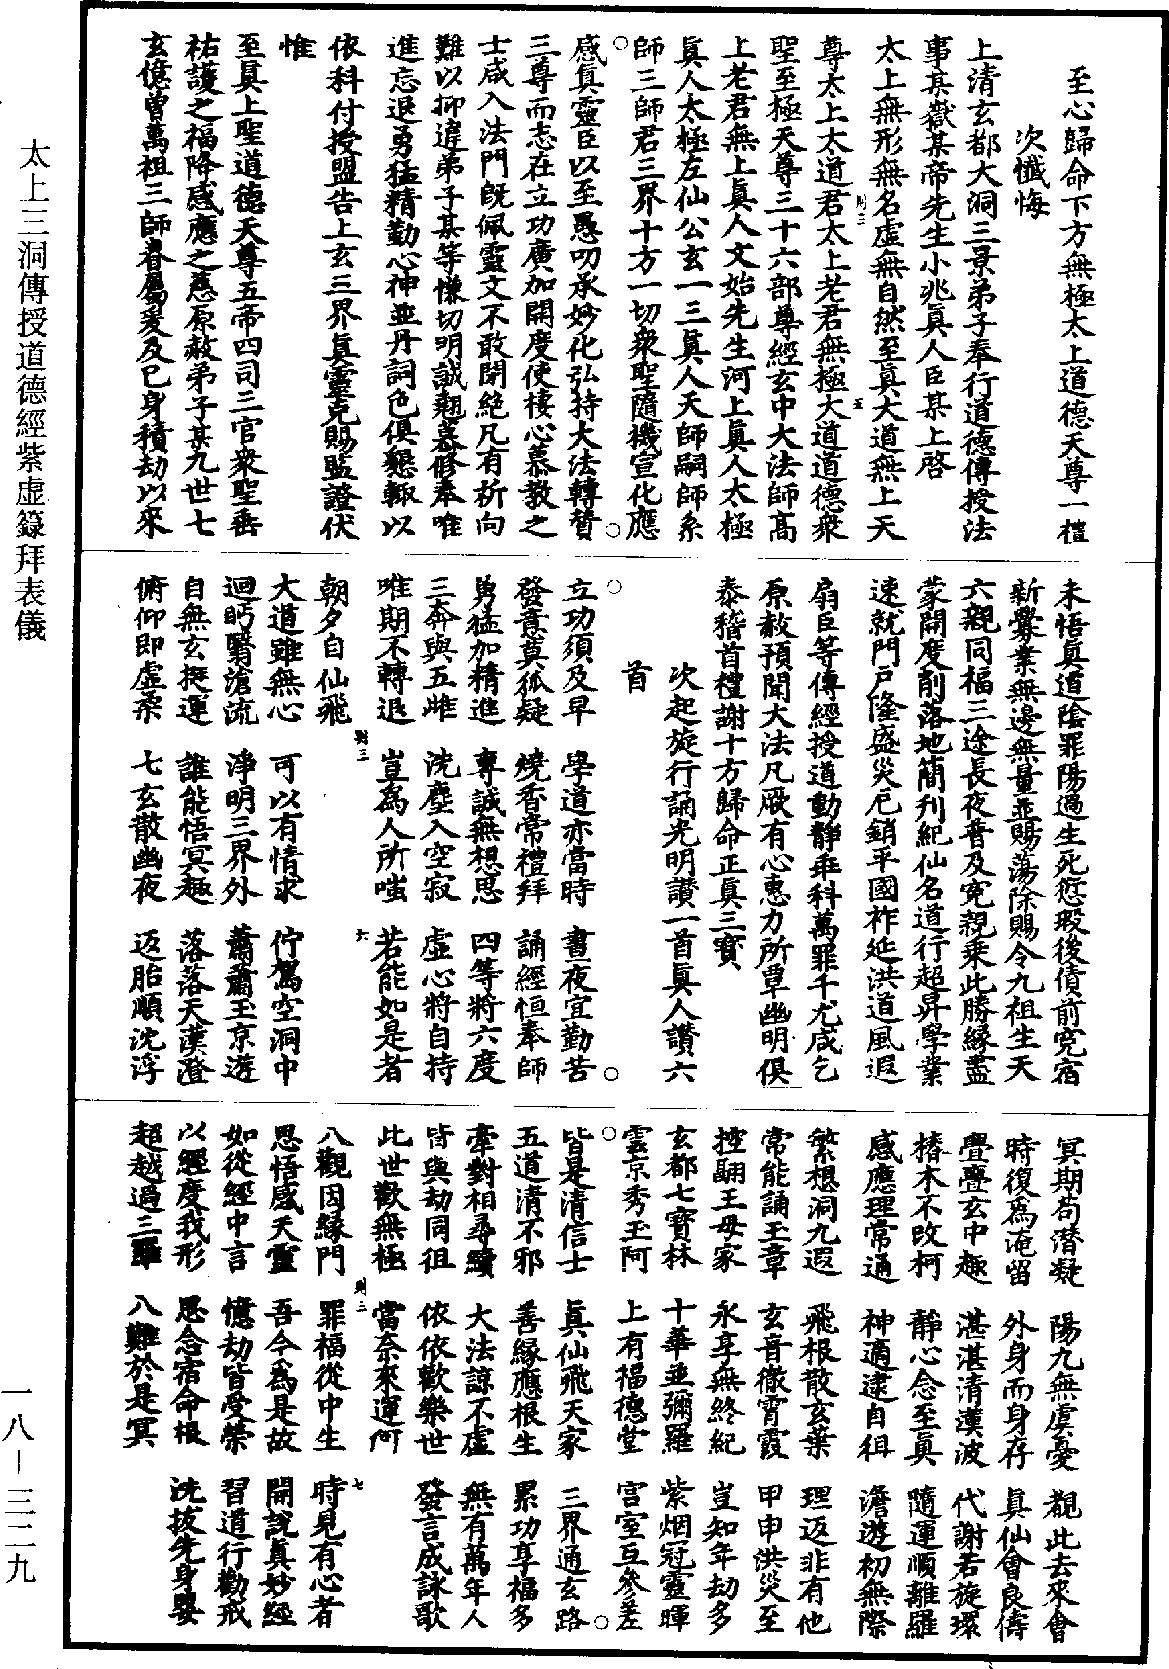 至心歸命下方無極太上道德天尊一槿
次懺悔
上清玄都大洞三景弟子奉行道德傳授法
事某嶽某帝先生小兆眞人臣某上啓
太上無形無名虛無自然至真大道無上天
尊太上太道君太上老君無極大道道德衆
聖至極天尊三十六部尊經玄中大法師高
上老君無上眞人文始先生河上眞人太極
眞人太極左仙公玄一三眞人天師嗣師系
師三師君三界十方一切衆聖隨機宣化應
感眞靈臣以至愚叨承妙化弘持大法轉贊
三尊而志在立功廣加開度使棲心慕教之
士咸入法門旣佩靈文不敢閉絕凡有祈向
難以抑違弟子某等慊切明誠翹慕修奉唯
進忘退勇猛精勤心神並丹詞色俱懇輒以
依科付授盟告上玄三界眞靈克賜監證伏
惟
至眞上聖道德天尊五帝四司三官衆聖垂
祐護之福降感應之慈原赦弟子某九世七
玄億曾萬祖三師眷屬爰及已身積劫以來
未悟眞道陰罪陽過生死愆瑕後債前寃宿
新釁業無邊無量並賜蕩除賜令九祖生天
六親同福三途長夜普及寃親乘此勝緣盡
蒙開度削落地簡刊紀仙名道行超昇學業
速就門戶隆盛災厄銷平國祚延洪道風遐
扇臣等傳經授道動靜乖科萬罪千尤咸乞
原赦預聞大法凡厥有心惠力所覃幽明俱
泰稽首禮謝十方歸命正眞三寶
次起旋行誦光明讚一首眞人讚六
首
立功須及早　學道亦當時　晝夜宜勤苦
發意莫狐疑　燒香常禮拜　誦經恒奉師
勇猛加精進　專誠無想思　四等將六度
三奔與五雌　洗塵入空寂　虛心將自持
唯期不轉退　豈為人所嗤　若能如是者
朝夕自仙飛
大道雖無心　可以有情求　佇駕空洞中
迴眄翳滄流　淨明三界外　蕭蕭玉京遊
自無玄挺運　誰能悟冥趣　落落天漢澄
俯仰即虛柔　七玄散幽夜　返胎順沈浮
冥期苟潜凝　陽九無虞憂　觀此去來會
時復為淹留　外身而身存　眞仙會良儔
疊疊玄中趣　湛湛清漢波　代謝若旋環
椿木不改柯　靜心念至眞　隨運順離羅
感應理常通　神適逮自徂　澹遊初無際
繁想洞九遐　飛根散玄葉　理返非有他
常能誦玉章　玄音徹霄霞　甲申洪災至
控翮王母家　永享無終紀　豈知年劫多
玄都七寶林　十華並彌羅　紫烟冠靈暉
雲京秀玉阿　上有福德堂　宫室互參差
皆是清信士　眞仙飛天家　三界通玄路
五道清不邪　善緣應根生　累功享福多
牽對相尋續　大法諒不虛　無有萬年人
皆與劫同徂　依依歡樂世　發言成詠歌
此世歡無極　當奈來運何
八觀因緣門　罪福從中生　時見有心者
思悟感天靈　吾今為是故　開說眞妙經
如從經中言　億劫皆受榮　習道行勸戒
以經度我形　思念宿命根　洗拔先身嬰
超越過三羅　八難於是冥
太上三洞傳授道德經紫虛籙拜表儀
一八—三二九